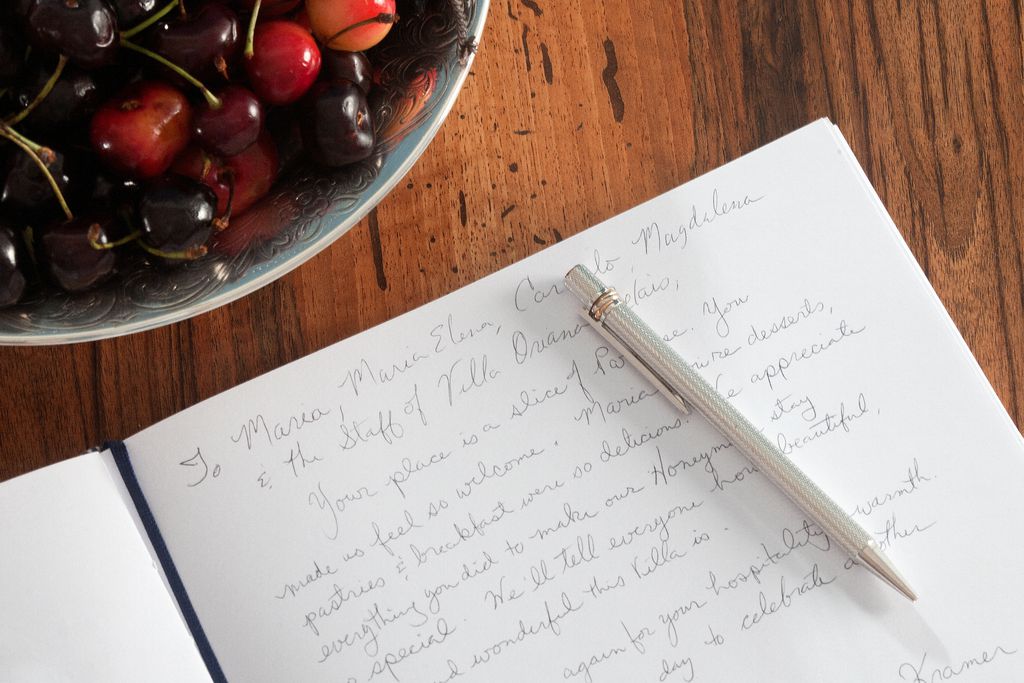 To Maria, Maria Elena, Magdalena
& the Staff of Villa
Your place is a slice of You
made us feel so welcome. Maria desserts,
pastries & breakfast were so delicious. We appreciate
everything you did to make our Honeymoon stay
so special. We'll tell everyone how beautiful,
and wonderful this Villa is.
again for your hospitality warmth.
day to celebrate another
Kramer